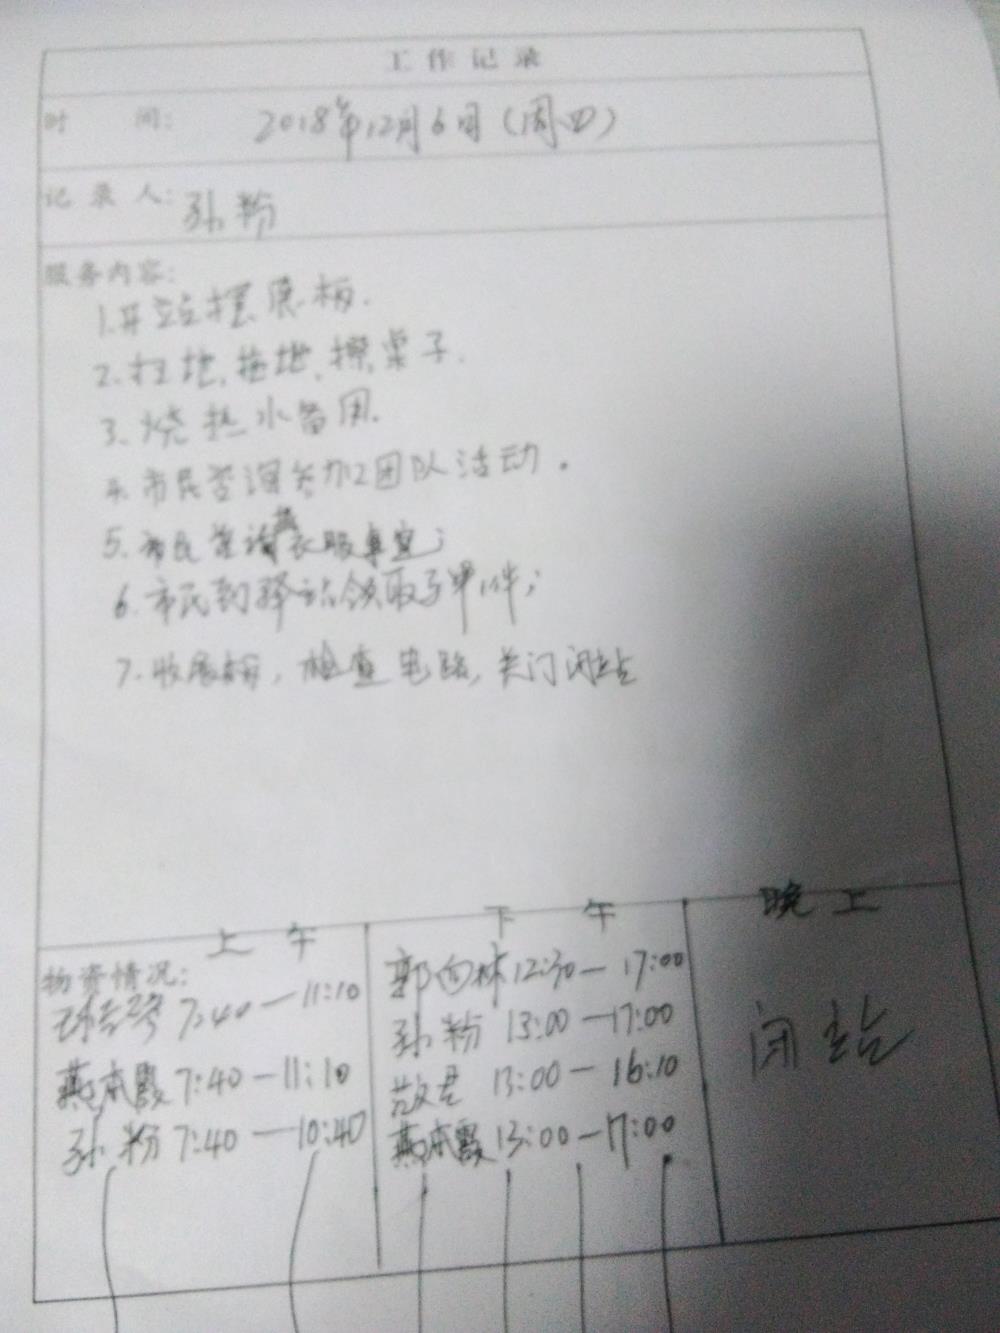 工作记录
时 间: 2018年12月6日(周四)
记录人: 孙粉
服务内容:
1.开站摆展柄.
2.扫地、拖地、擦桌子.
3.烧热水备用.
4.市民咨询参加团队活动.
5.市民 衣服
6.市民到驿站领取 件;
7.收展 , 检查电路, 关门闭站
上午 下午 晚上
物资情况:
7:40—11:10
燕本霞 7:40—11:10
孙粉 7:40—10:40
郭向林 12:30—17:00
孙粉 13:00—17:00
13:00—16:10
燕本霞 13:00—17:00
闭站